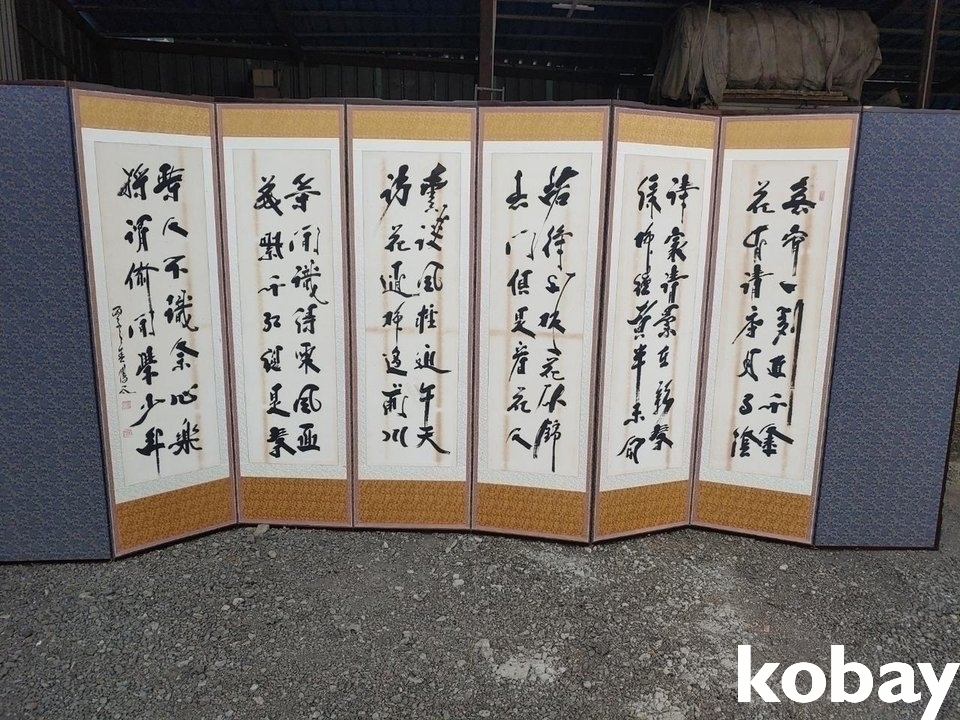 春宵一刻直千金
花有清香月有陰
詩家清景在新春
綠柳纔黃半未勻
若待上林花似錦
出門俱是看花人
雲淡風輕近午天
訪花隨柳過前川
等閒識得東風面
萬紫千紅總是春
人不識余心樂
將謂偷閒學少年
kobay